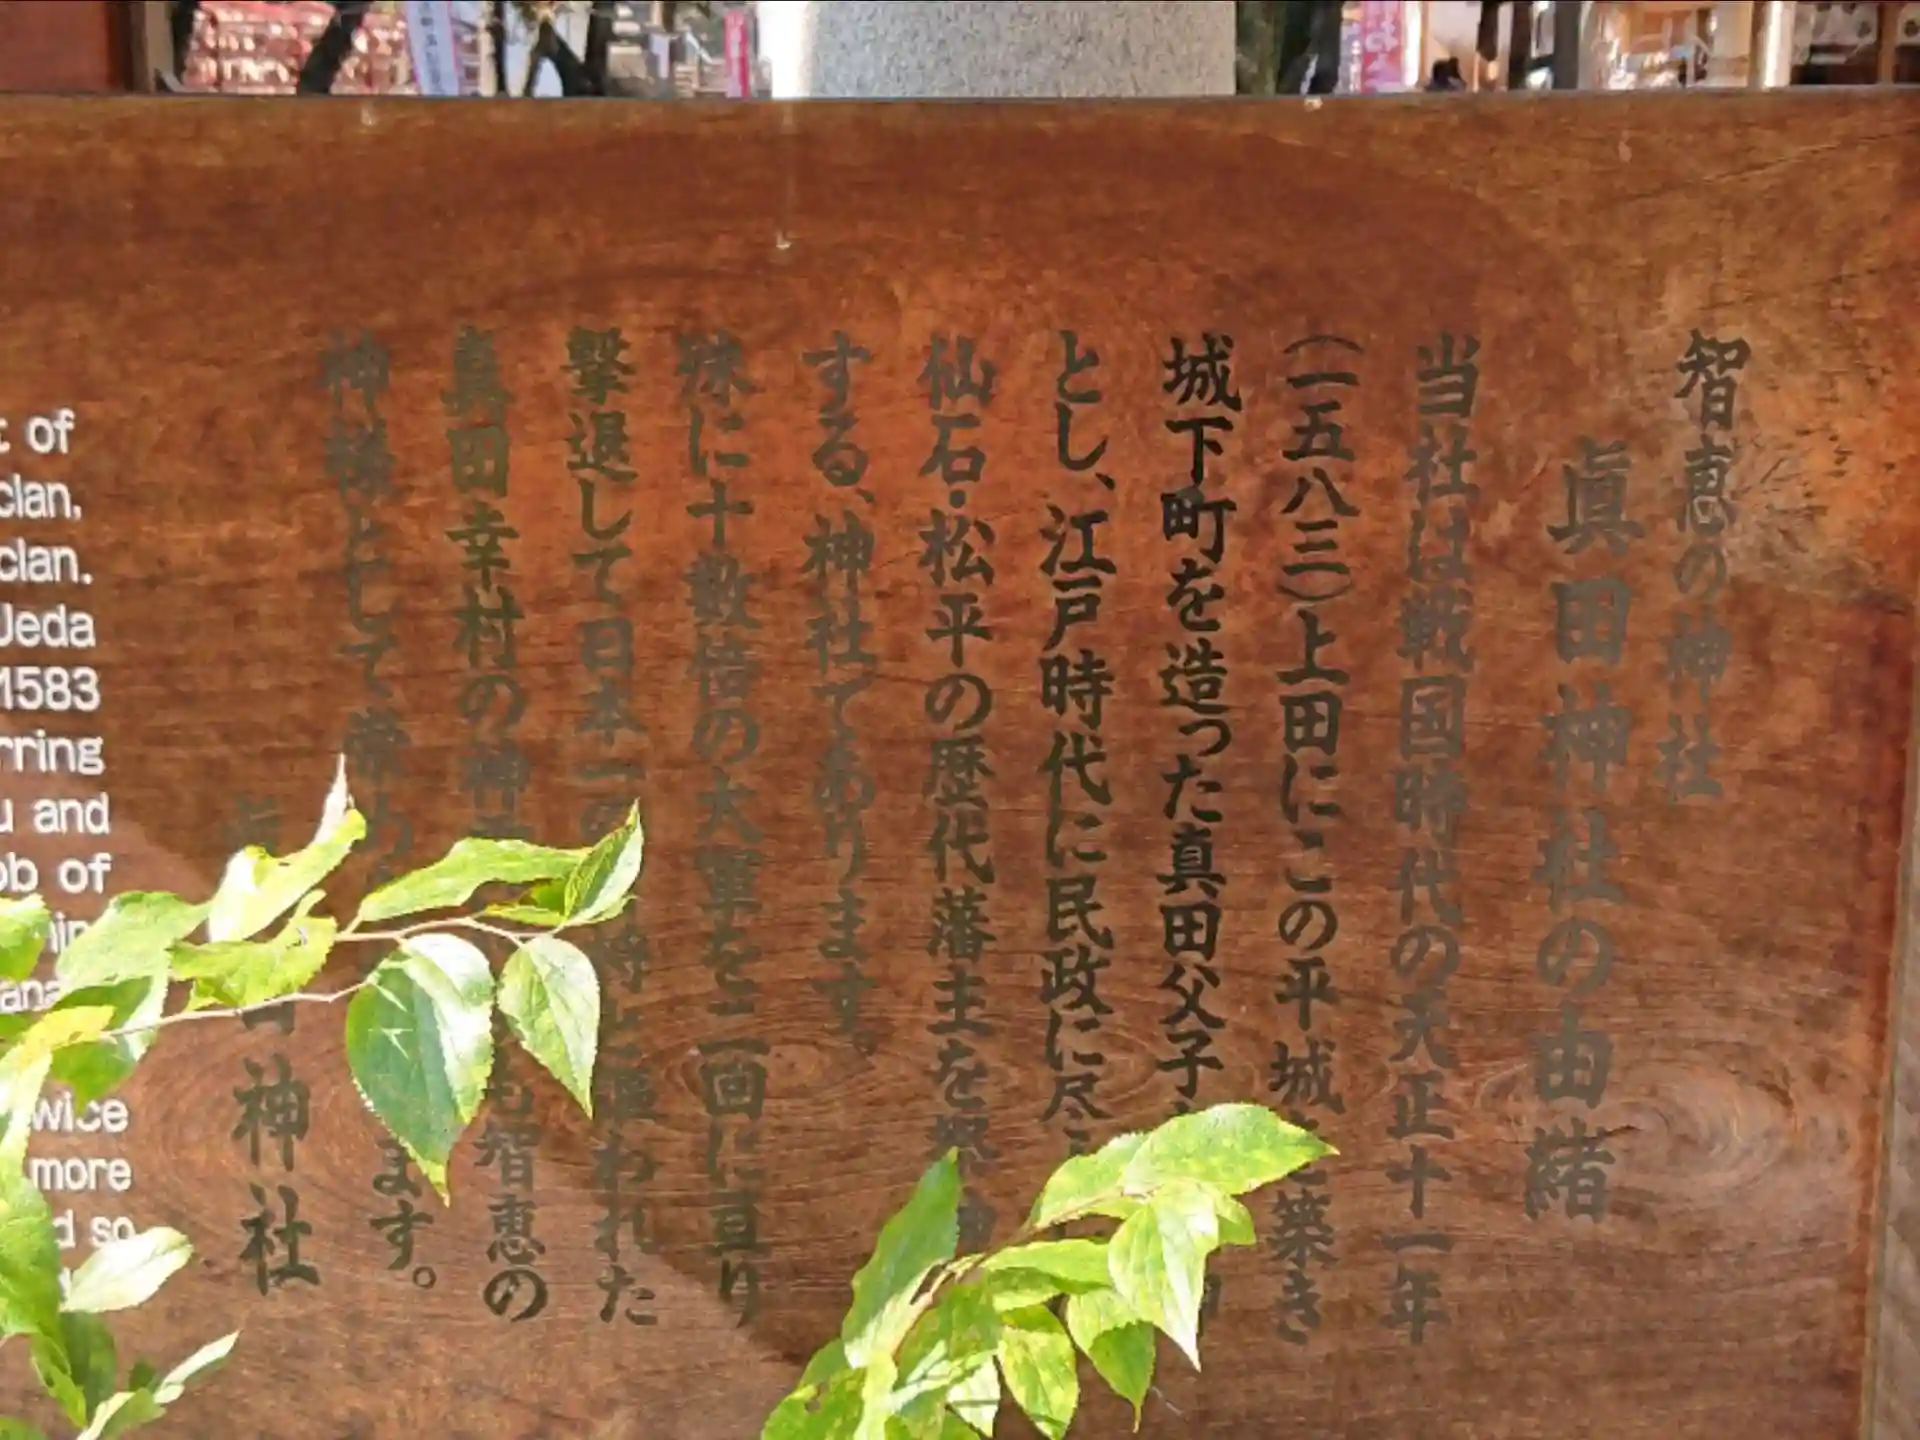 智恵の神社
眞田神社の由緒
当社は戦国時代の天正十一年
(一五八三)上田にこの平城を築き
城下町を造った真田父子を
とし、江戸時代に民政に尽
仙石・松平の歴代藩主を
する、神社であります。
殊に十数倍の大軍を二回に亘り
撃退して日本一の 謳われた
真田幸村の神 智恵の
神様として ます。
神社
of
clan,
clan.
Ueda
1583
rring
u and
ob of
wice
more
so